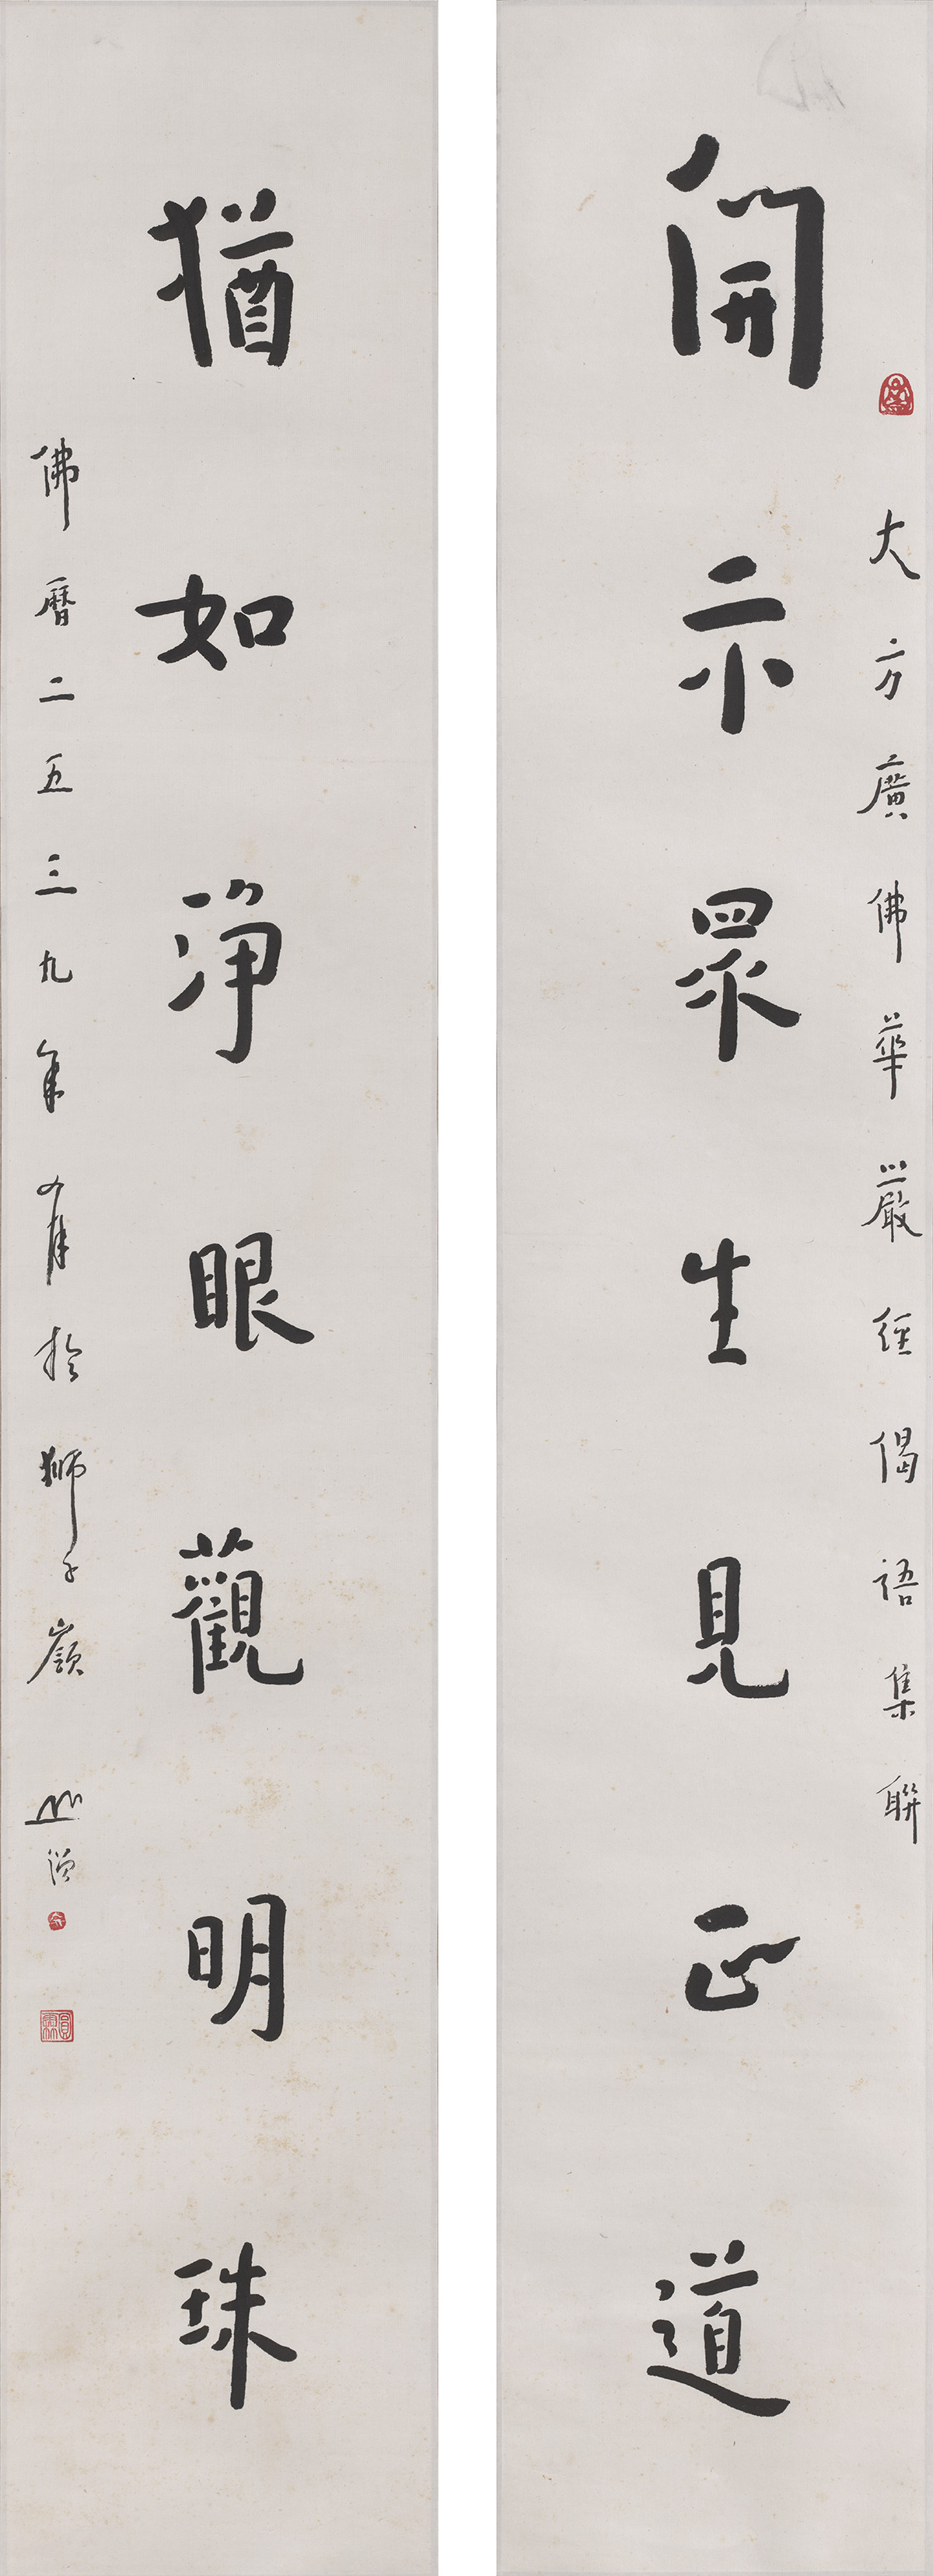 大方廣佛華嚴經偈語集聯
開示眾生見正道
猶如淨眼觀明珠
佛曆二五三九年 月於獅子嶺
山僧